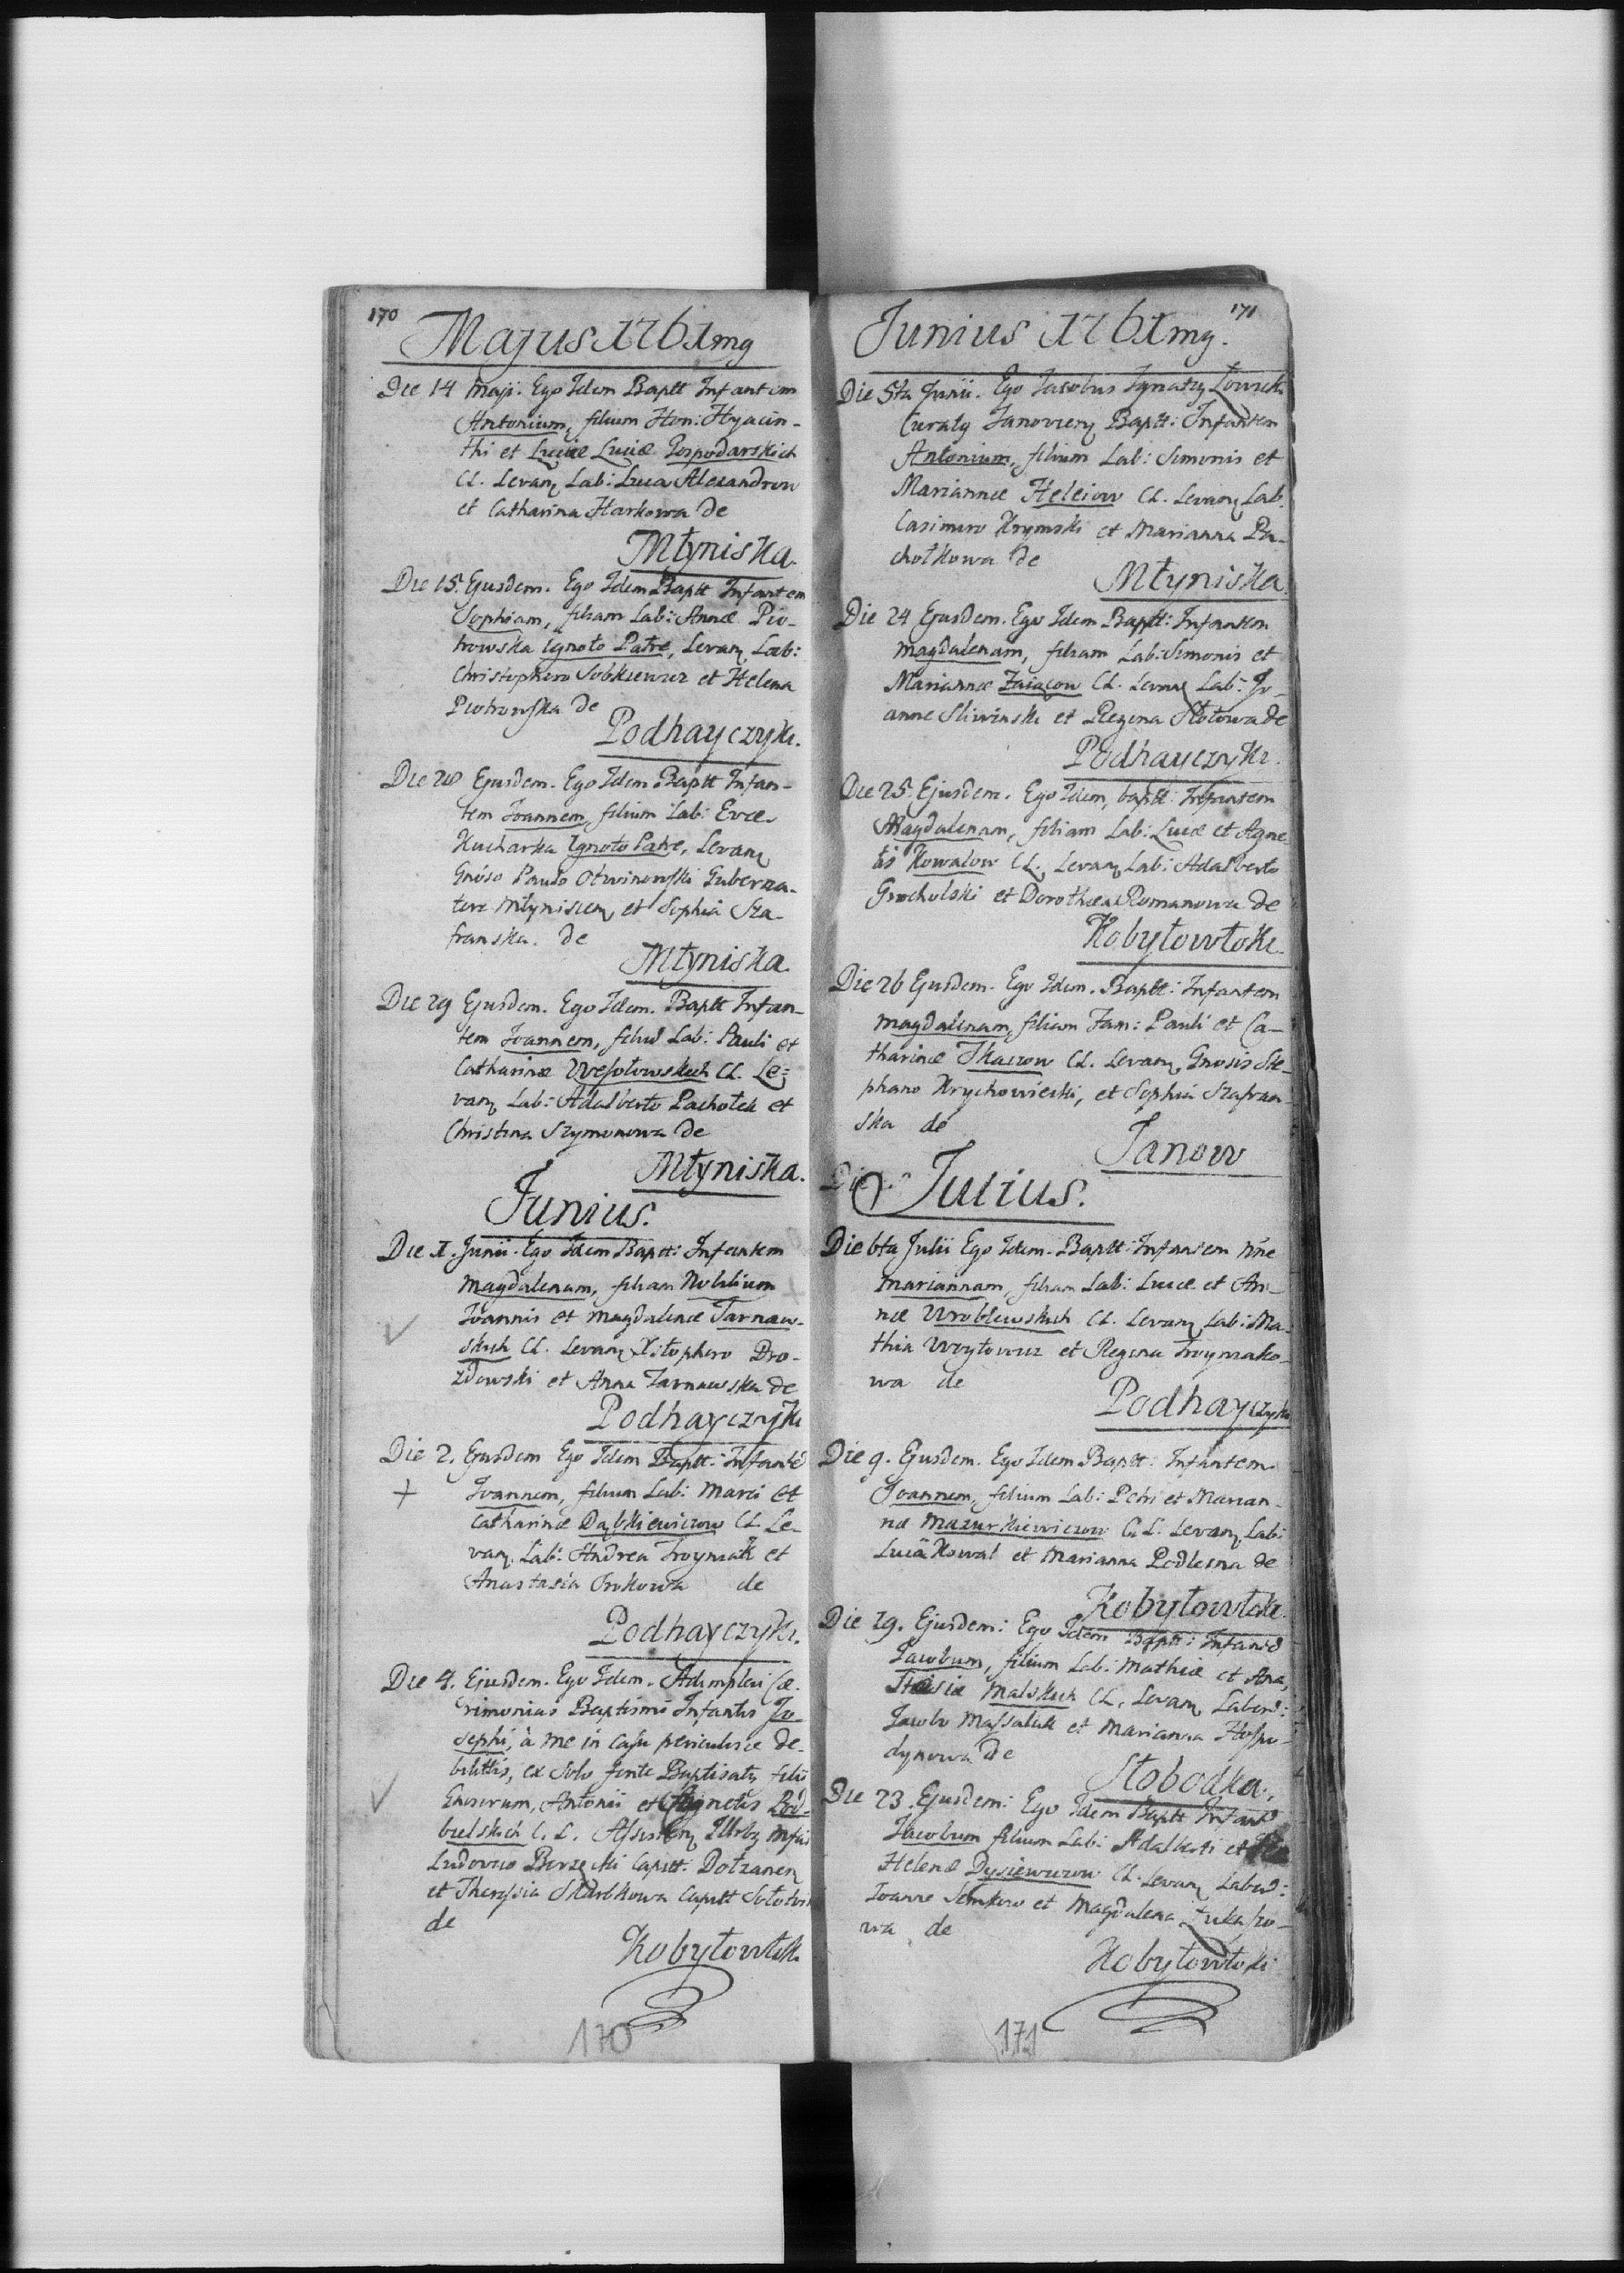 170
Majus 1761mg
Die 14 Maji. Ego Idem Baptt Infantem
Antonium, filium Hon: Hyacin-
thi et Luciæ Luciæ Gospodarskich
CL. Levanq Lab: Luca Alexandrow
et Catharina Harkowa de
Młyniska.
Die 15. Ejusdem. Ego Idem Baptt Infantem
Sophiam, filiam Lab: Annæ Pio-
trowska Ignoto Patre, Levanq Lab:
Christophoro Sobkiewicz et Helena
Piotrowska de
Podhayczyki.
Die 28 Ejusdem. Ego Idem Baptt Infan-
tem Joannem, filium Lab: Evæ
Kucharka Ignoto Patre, Levanq
Gnoso Paulo Otwinowski Guberna-
tore Młyniscen, et Sophia Sza-
franska. de
Młyniska.
Die 29 Ejusdem. Ego Idem. Baptt Infan-
tem Joannem, filiu Lab: Pauli et
Catharinæ Wesołowskich CL. Le-
vanq Lab: Adalberto Pachołek et
Christina Szymonowa de
Młyniska.
Junius.
Die 1. Junii. Ego Idem Baptt: Infantem
Magdalenam, filiam Nobilium
Joannis et Magdalenæ Tarnaw-
skich CL. Levanq Xstophoro Dro-
zdowski et Anna Tarnawska de
Podhayczyki
Die 2. Ejusdem Ego Idem Baptt: Infante
+ Joannem, filium Lab: Marci et
Catharinæ Dąbkiewiczow CL. Le-
vanq Lab: Andrea Troyniak et
Anastasia de
Podhayczyki.
Die 4. Ejusdem. Ego Idem. Adimplevi Cæ-
rimonias Baptismi Infantis Jo-
sephi, à me in casu periculosæ de-
bilittis, ex solo fonte Baptisati, filii
Gnosorum, Antonii et Agnetis Pod-
bielskich C. L. Assisten Illrbq Mfiis
Ludovico Borzęcki Capitt:
et Theressia Skarbkowa Capitt
de
Kobyłowłoki
170
171
Junius 1761mg.
Die 5ta Junii. Ego Jacobus Ignaty Łowicki
Curaty Janovienq Baptt: Infantem
Antonium, filium Lab: Simonis et
Mariannæ Heleiow CL. Levanq Lab
Casimiro Krymski et Marianna Pa-
chołkowa de
Młyniska.
Die 24 Ejusdem. Ego Idem Baptt: Infantem
Magdalenam, filiam Lab: Simonis et
Mariannæ Zaiącow CL. Levanq Lab: Jo-
anne Sliwinski et Regina Słotowa de
Podhayczyki.
Die 25. Ejusdem. Ego Idem, baptt: Infantem
Magdalenam, filiam Lab: Lucæ et Agne-
tis Kowalow CL. Levanq Lab: Adalberto
Grocholski et Dorothea Romanowa de
Kobyłowłoki.
Die 26 Ejusdem. Ego Idem. Baptt: Infantem
Magdalenam, filiam Fam: Pauli et Ca-
tharinæ Tkaczow CL. Levanq Gnosis Ste-
phano Krychowiecki, et Sophia Szafran-
ska de
Janow
Julius.
Die 6ta Julii Ego Idem. Baptt: Infantem nne
Mariannam, filiam Lab: Lucæ et An-
næ Wroblewskich CL. Levanq Lab: Ma-
thia Woytowicz et Regina Troyniako-
wa de
Podhayczyki
Die 9. Ejusdem. Ego Idem Baptt: Infantem
Joannem, filium Lab: Petri et Marian-
næ Mazurkiewiczow C.L. Levanq Lab:
Luca Kowal et Marianna Podlesna de
Kobyłowłoki.
Die 19. Ejusdem: Ego Idem Baptt: Infante
Jacobum, filium Lab: Mathiæ et Ana-
stasiæ Malskich CL. Levanq Labor:
Jacobo Massaluk et Marianna Hospo-
dynowa de
Słobodka.
Die 23. Ejusdem: Ego Idem Baptt Infant
Jacobum filium Lab: Adalberti et
Helenæ Dysiewiczow CL. Levanq Labor:
Joanne Semkow et Magdalena Łukaszo-
wa de
Kobyłowłoki
171